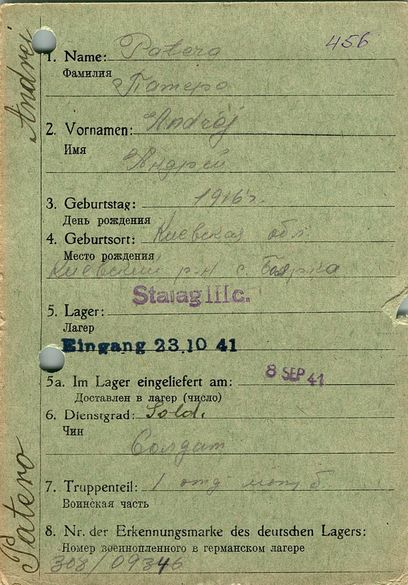 456
1. Name: Patero
Фамилия
Патеро
2. Vornamen: Andrej
Имя
Андрей
3. Geburtstag: 1916 г.
День рождения
4. Geburtsort: Киевская обл
Место рождения
Киевский р-н с. Боярка
Stalag III c.
5. Lager:
Лагер
Eingang 23.10 41
5a. Im Lager eingeliefert am: 8 SEP 41
Доставлен в лагер (число)
6. Dienstgrad: Sold.
Чин
Солдат
7. Truppenteil: 1 отд
Воинская часть
8. Nr. der Erkennungsmarke des deutschen Lagers:
Номер военнопленного в германском лагере
308/09346
Patero Andrej